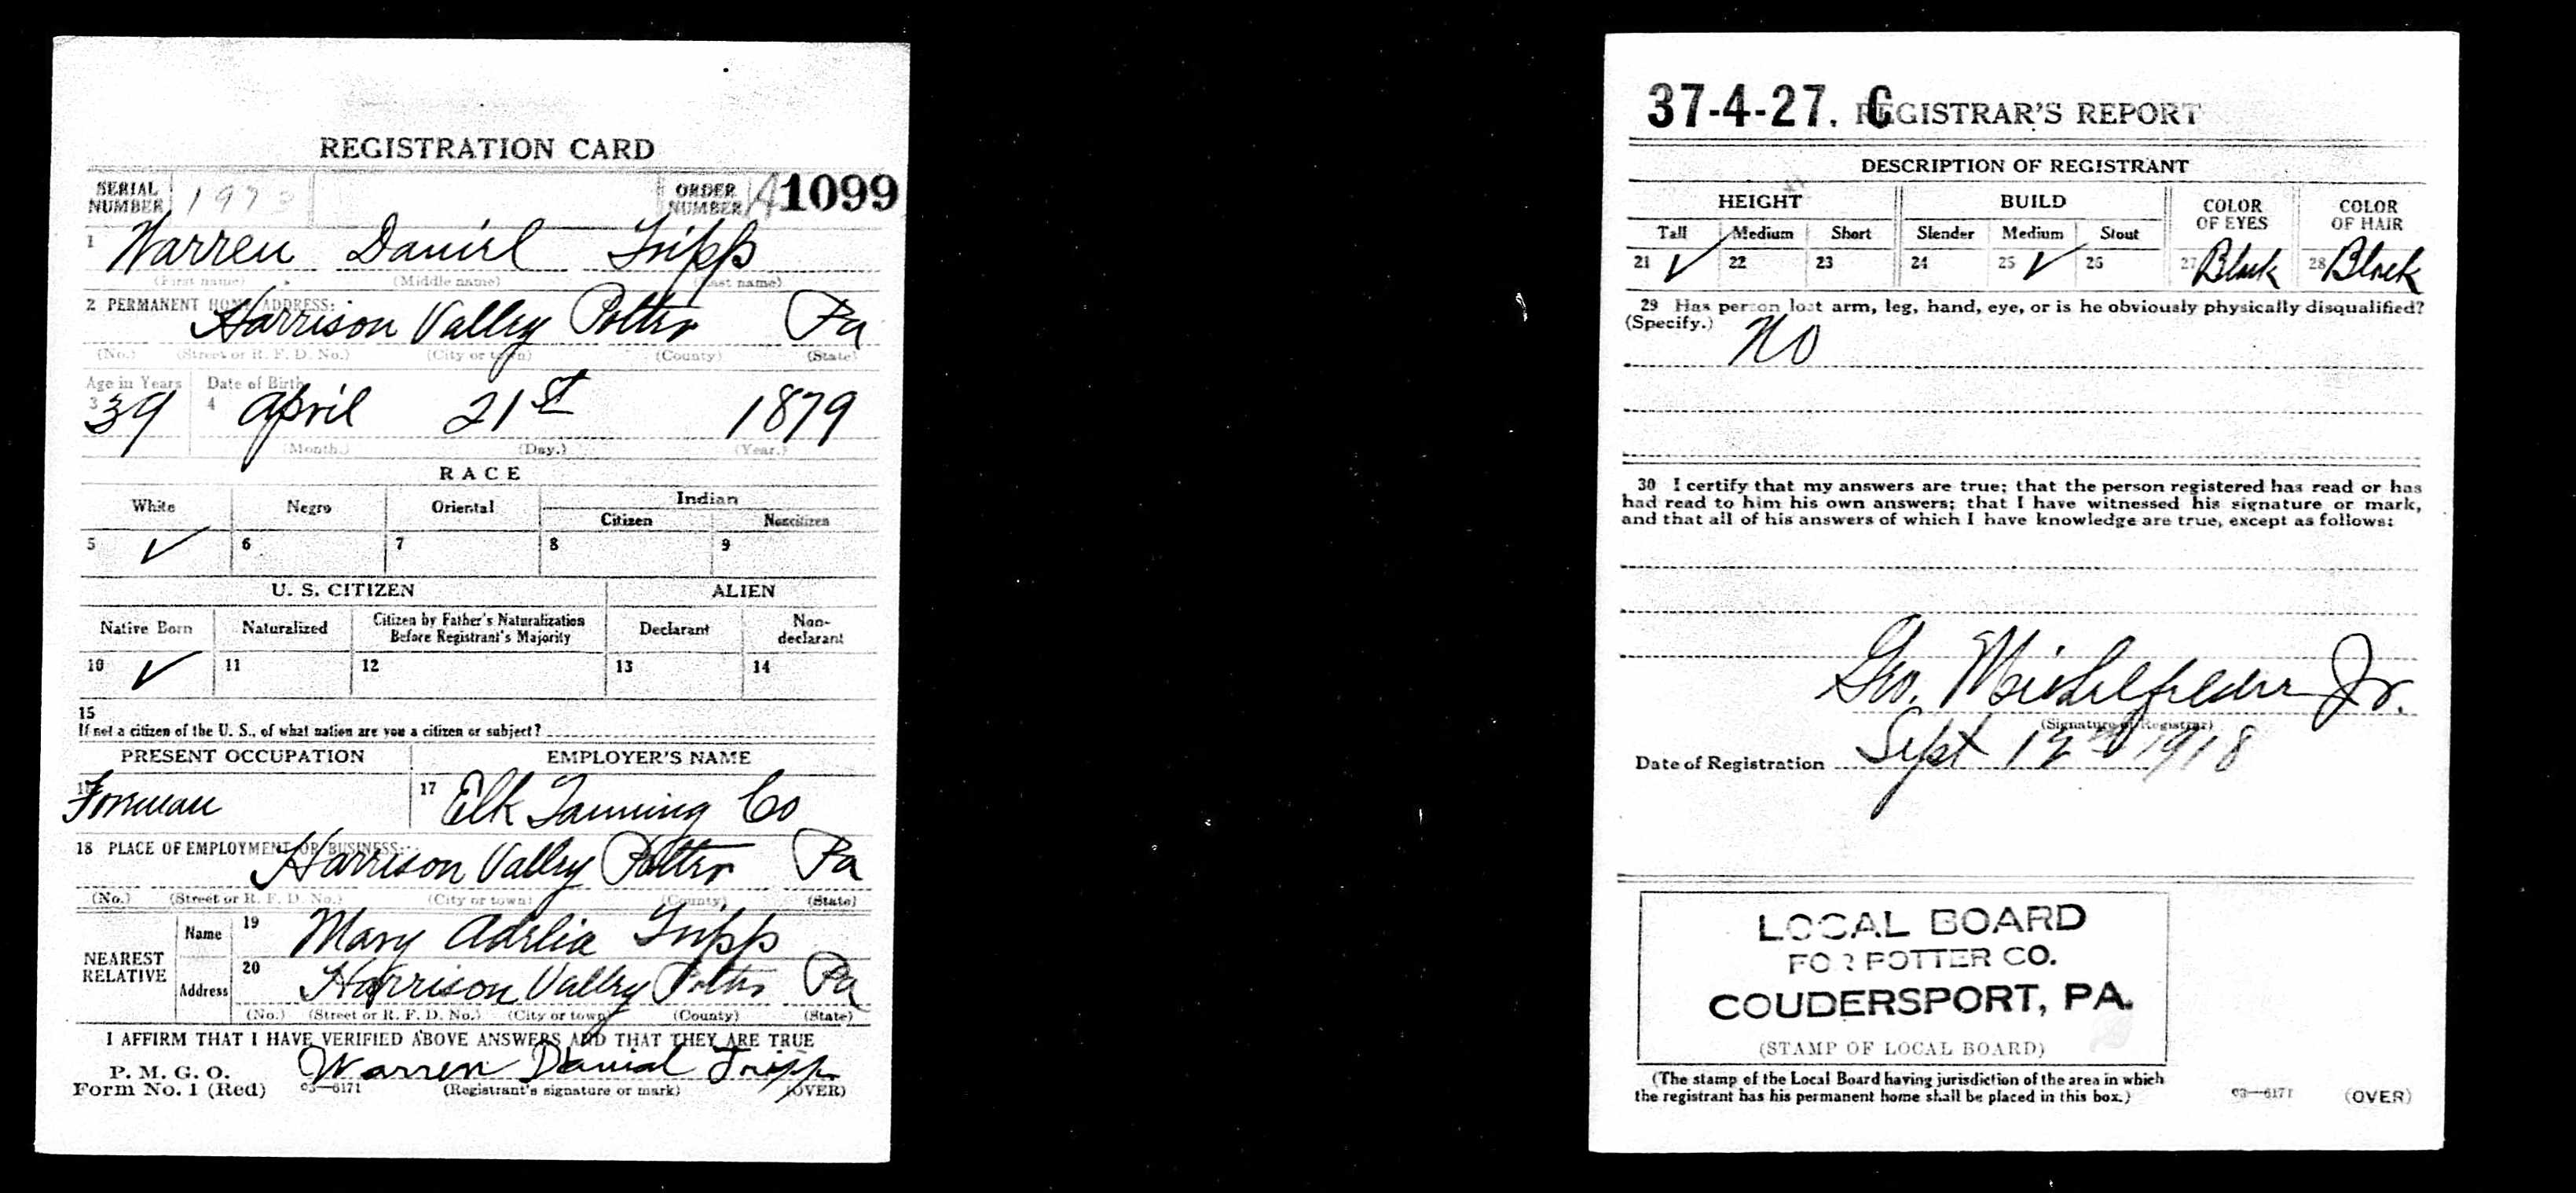 REGISTRATION CARD
SERIAL NUMBER 1973 ORDER NUMBER A1099
1 Warren Daniel Tripp
(First name) (Middle name) (Last name)
2 PERMANENT HOME ADDRESS:
Harrison Valley Potter Pa
(No.) (Street or R. F. D. No.) (City or town) (County) (State)
Age in Years Date of Birth
3 39 4 April 21st 1879
(Month.) (Day.) (Year.)
RACE
White Negro Oriental Indian
Citizen Noncitizen
5 ✓ 6 7 8 9
U. S. CITIZEN ALIEN
Native Born Naturalized Citizen by Father's Naturalization Before Registrant's Majority Declarant Non-declarant
10 ✓ 11 12 13 14
15
If not a citizen of the U. S., of what nation are you a citizen or subject?
PRESENT OCCUPATION EMPLOYER'S NAME
16 Forman 17 Elk Tanning Co
18 PLACE OF EMPLOYMENT OR BUSINESS:
Harrison Valley Potter Pa
(No.) (Street or R. F. D. No.) (City or town) (County) (State)
NEAREST RELATIVE
Name 19 Mary Adelia Tripp
Address 20 Harrison Valley Potter Pa
(No.) (Street or R. F. D. No.) (City or town) (County) (State)
I AFFIRM THAT I HAVE VERIFIED ABOVE ANSWERS AND THAT THEY ARE TRUE
P. M. G. O.
Form No. 1 (Red) 03—6171 Warren Danial Tripp
(Registrant's signature or mark) (OVER)
37-4-27. C REGISTRAR'S REPORT
DESCRIPTION OF REGISTRANT
HEIGHT BUILD COLOR OF EYES COLOR OF HAIR
Tall Medium Short Slender Medium Stout
21 ✓ 22 23 24 25 ✓ 26 27 Black 28 Black
29 Has person lost arm, leg, hand, eye, or is he obviously physically disqualified?
(Specify.) No
30 I certify that my answers are true; that the person registered has read or has
had read to him his own answers; that I have witnessed his signature or mark,
and that all of his answers of which I have knowledge are true, except as follows:
Geo. Michelfelder Jr.
(Signature of Registrar)
Date of Registration Sept 12th 1918
LOCAL BOARD
FOR POTTER CO.
COUDERSPORT, PA.
(STAMP OF LOCAL BOARD)
(The stamp of the Local Board having jurisdiction of the area in which
the registrant has his permanent home shall be placed in this box.)
03—6171 (OVER)